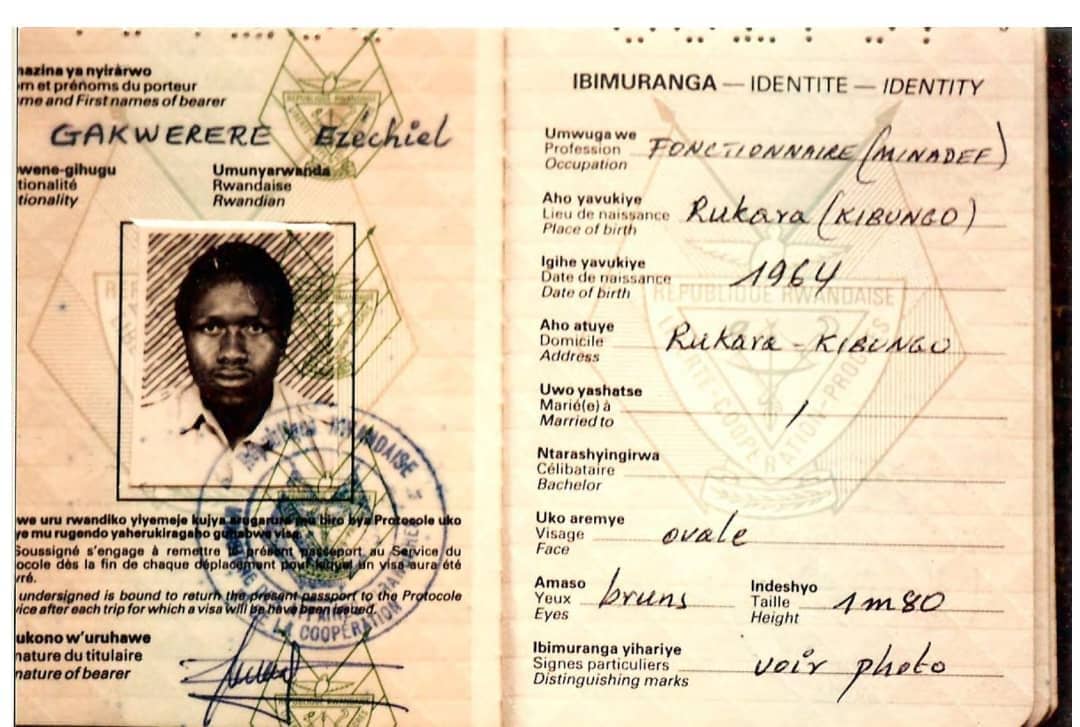 mazina ya nyirarwo
om et prénoms du porteur
me and First names of bearer
GAKWERERE Ezéchiel
wene-gihugu Umunyarwanda
tionalité Rwandaise
tionality Rwandian
we uru rwandiko yiyemeje kujya arugarura mu biro bya Protocole uko
ye mu rugendo yaherukiragaho guhabwa visa.
Soussigné s'engage à remettre le présent passeport au Service du
ocole dès la fin de chaque déplacement pour lequel un visa aura été
vré.
undersigned is bound to return the present passport to the Protocole
vice after each trip for which a visa will be have been issued.
ukono w'uruhawe
nature du titulaire
nature of bearer
REPUBLIQUE RWANDAISE
DE LA COOPERATION
IBIMURANGA — IDENTITE — IDENTITY
Umwuga we
Profession FONCTIONNAIRE (MINADEF)
Occupation
Aho yavukiye
Lieu de naissance Rukara (KIBUNGO)
Place of birth
Igihe yavukiye
Date de naissance 1964
Date of birth
REPUBLIQUE RWANDAISE
LIBERTE-COOPERATION-PROGRES
Aho atuye
Domicile Rukara - KIBUNGO
Address
Uwo yashatse
Marié(e) à /
Married to
Ntarashyingirwa
Célibataire
Bachelor
Uko aremye
Visage ovale
Face
Amaso Indeshyo
Yeux bruns Taille 1m80
Eyes Height
Ibimuranga yihariye
Signes particuliers voir photo
Distinguishing marks